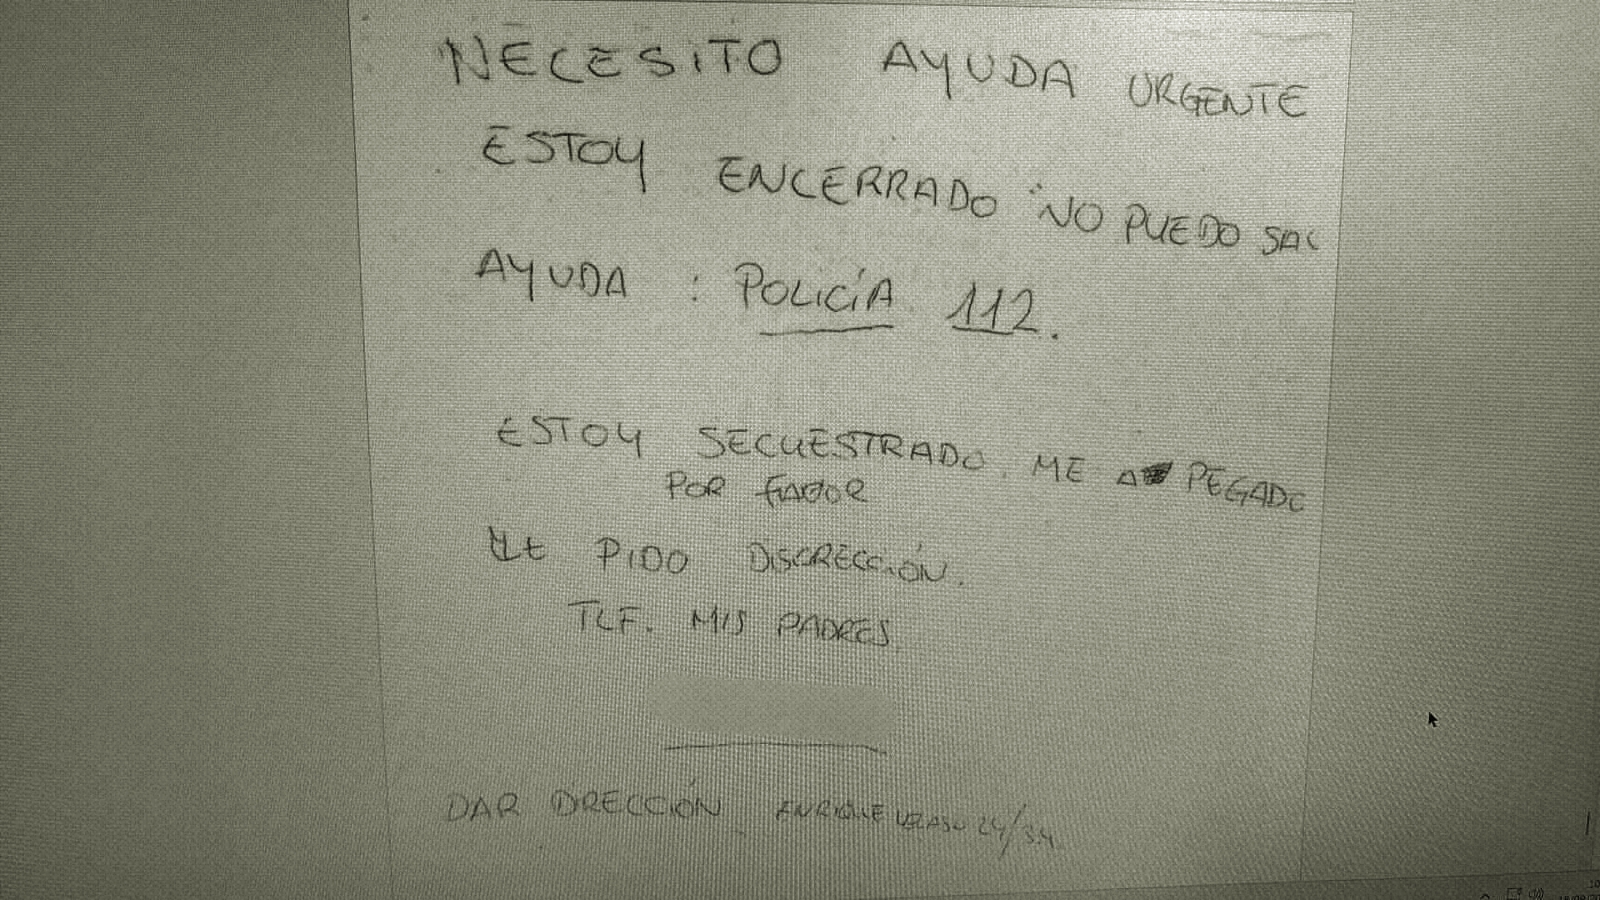 NECESITO AYUDA URGENTE
ESTOY ENCERRADO NO PUEDO SAL
AYUDA : POLICÍA 112.
ESTOY SECUESTRADO. ME A PEGADO
POR FAVOR
LE PIDO DISCRECCIÓN.
TLF. MIS PADRES
DAR DRECCIÓN ENRIQUE 24/3A